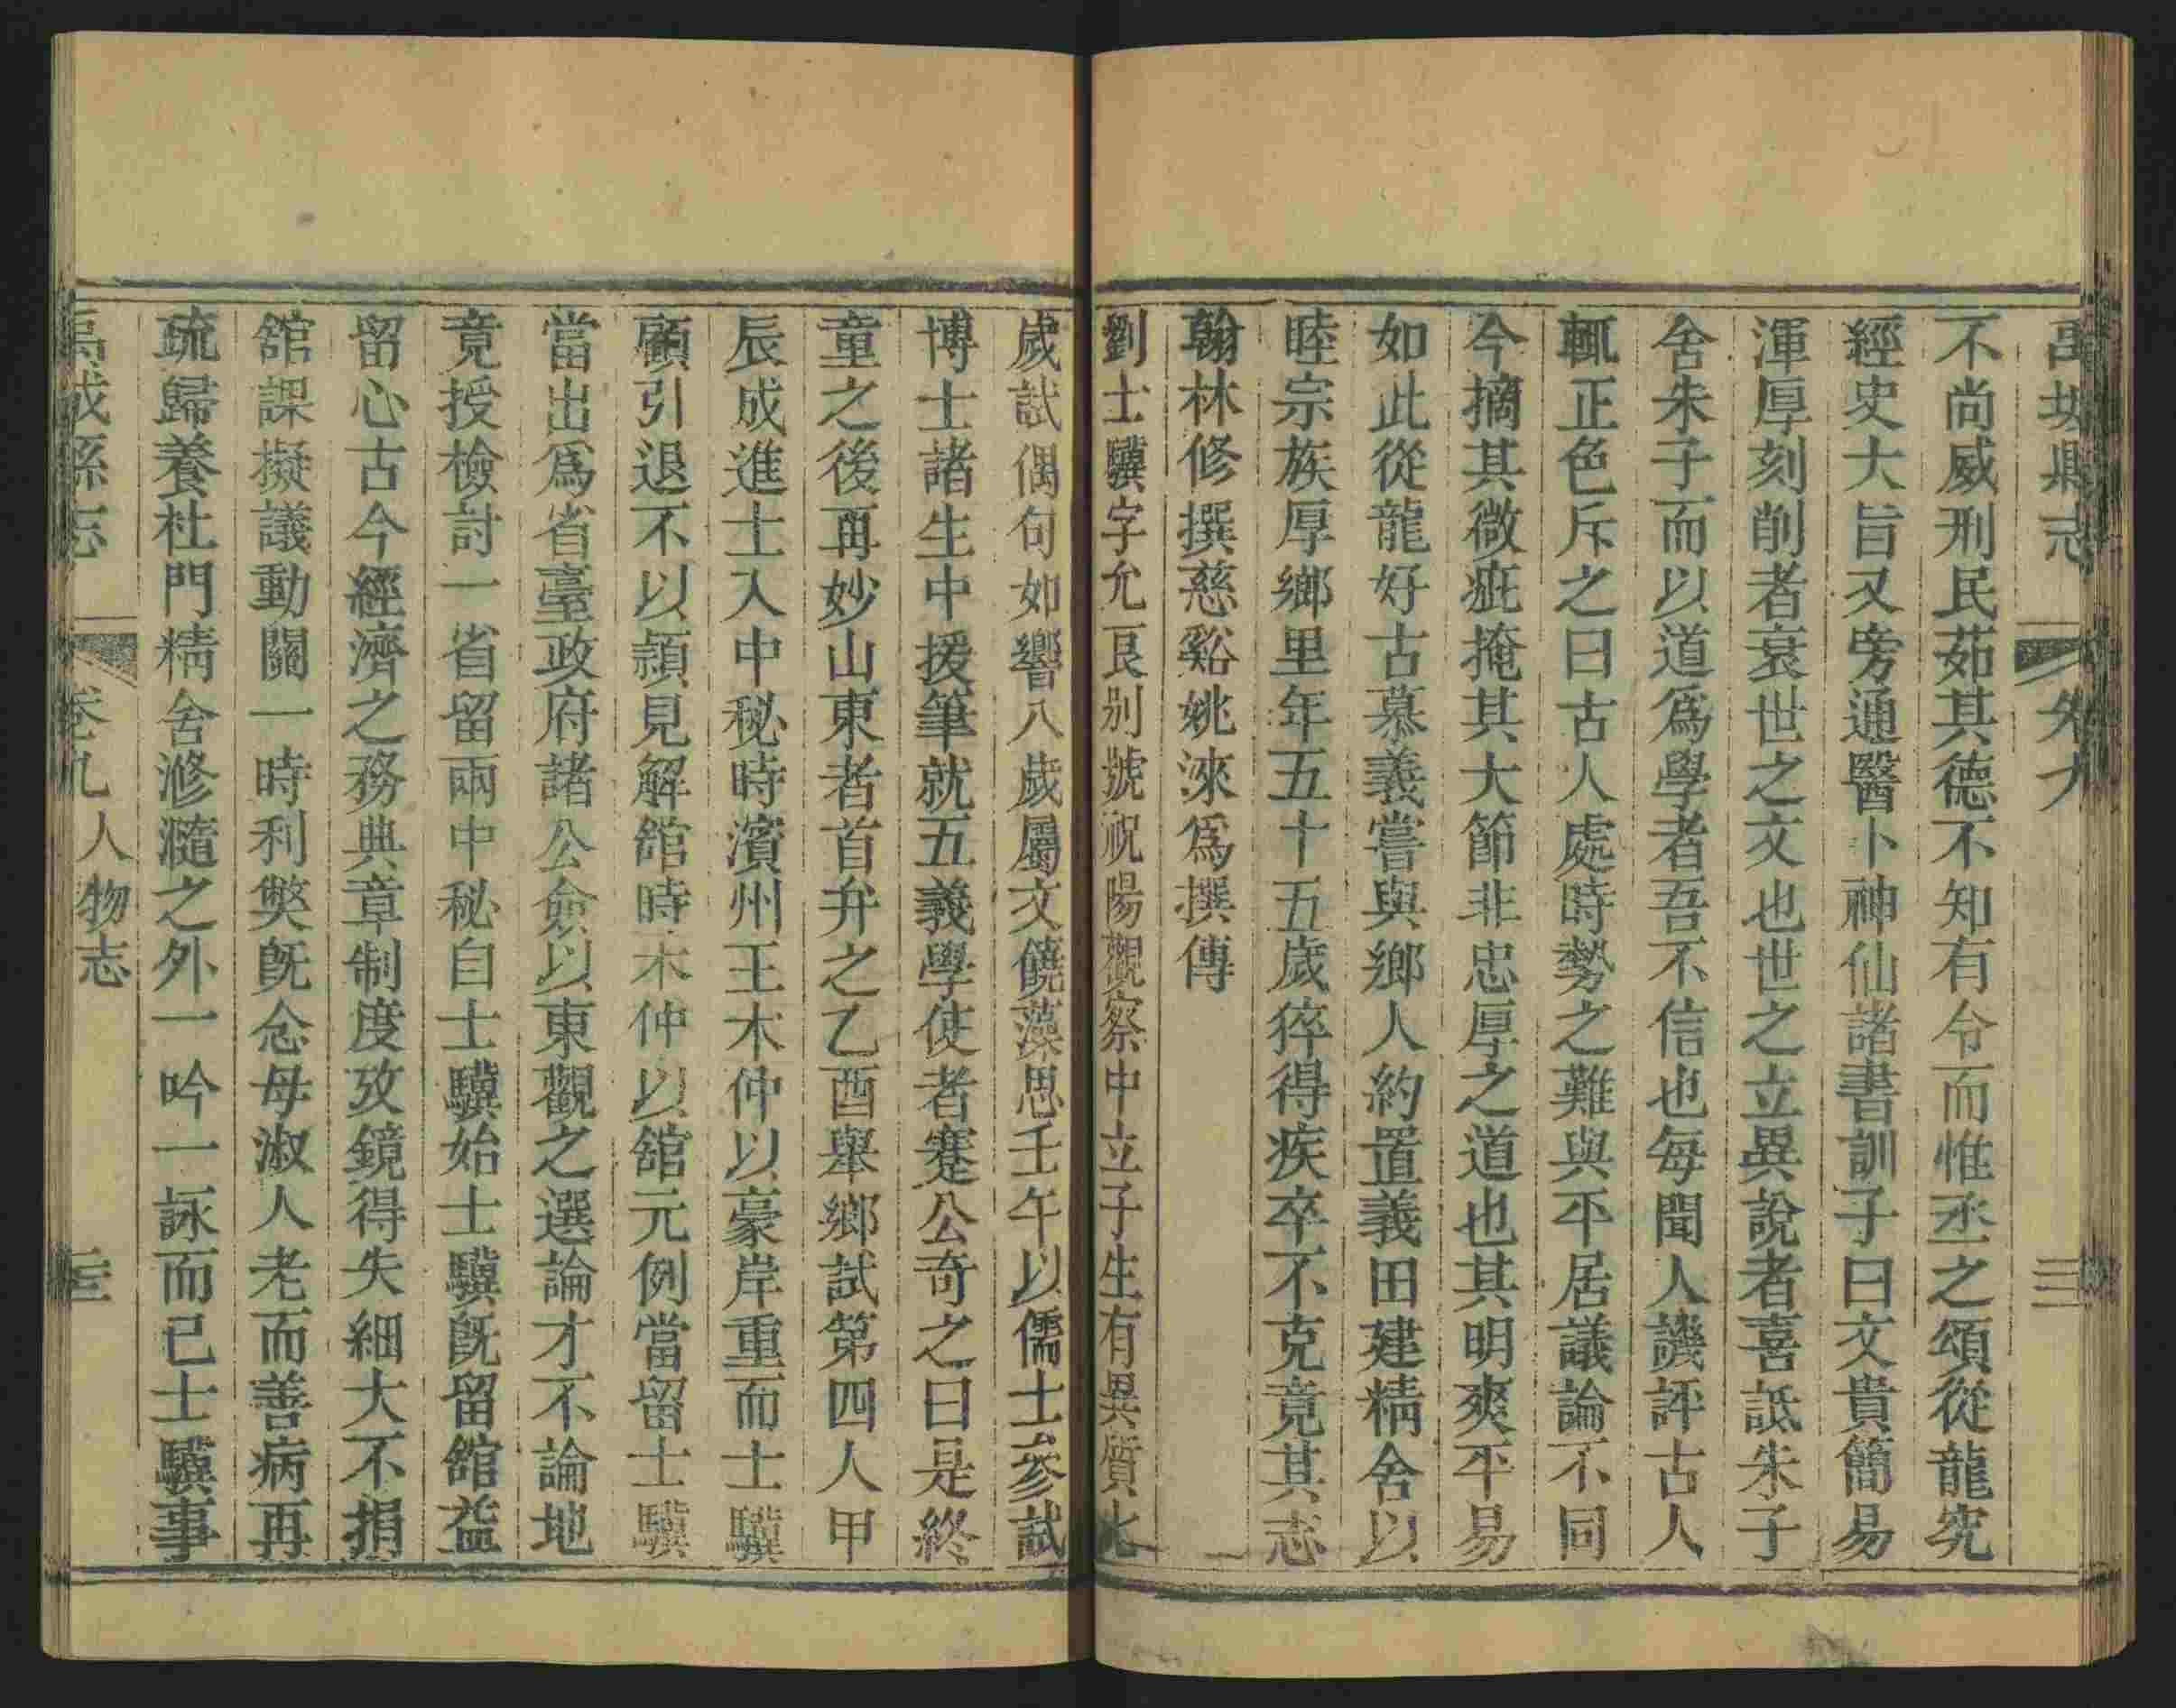 禹城縣志 卷九 三
不尚威刑民茹其德不知有令而惟丞之頌從龍究
經史大旨又旁通醫卜神仙諸書訓子曰文貴簡易
渾厚刻削者衰世之文也世之立異說者喜詆朱子
舍朱子而以道爲學者吾不信也每聞人譏評古人
輒正色斥之曰古人處時勢之難與平居議論不同
今摘其微疵掩其大節非忠厚之道也其明爽平易
如此從龍好古慕義嘗與鄉人約置義田建精舍以
睦宗族厚鄉里年五十五歲猝得疾卒不克竟其志
翰林修撰慈谿姚淶爲撰傳
劉士驥字允良別號祝陽觀察中立子生有異質七
歲試偶句如響八歲屬文饒藻思壬午以儒士參試
博士諸生中援筆就五義學使者蹇公奇之曰是終
童之後再妙山東者首弁之乙酉舉鄉試第四人甲
辰成進士入中秘時濱州王木仲以豪岸重而士驥
顧引退不以頴見解舘時木仲以舘元例當留士驥
當出爲省臺政府諸公僉以東觀之選論才不論地
竟授檢討一省留兩中秘自士驥始士驥旣留舘益
留心古今經濟之務典章制度攷鏡得失細大不捐
舘課擬議動關一時利獘旣念母淑人老而善病再
疏歸養杜門精舍滫瀡之外一吟一詠而已士驥事
禹城縣志 卷九 人物志